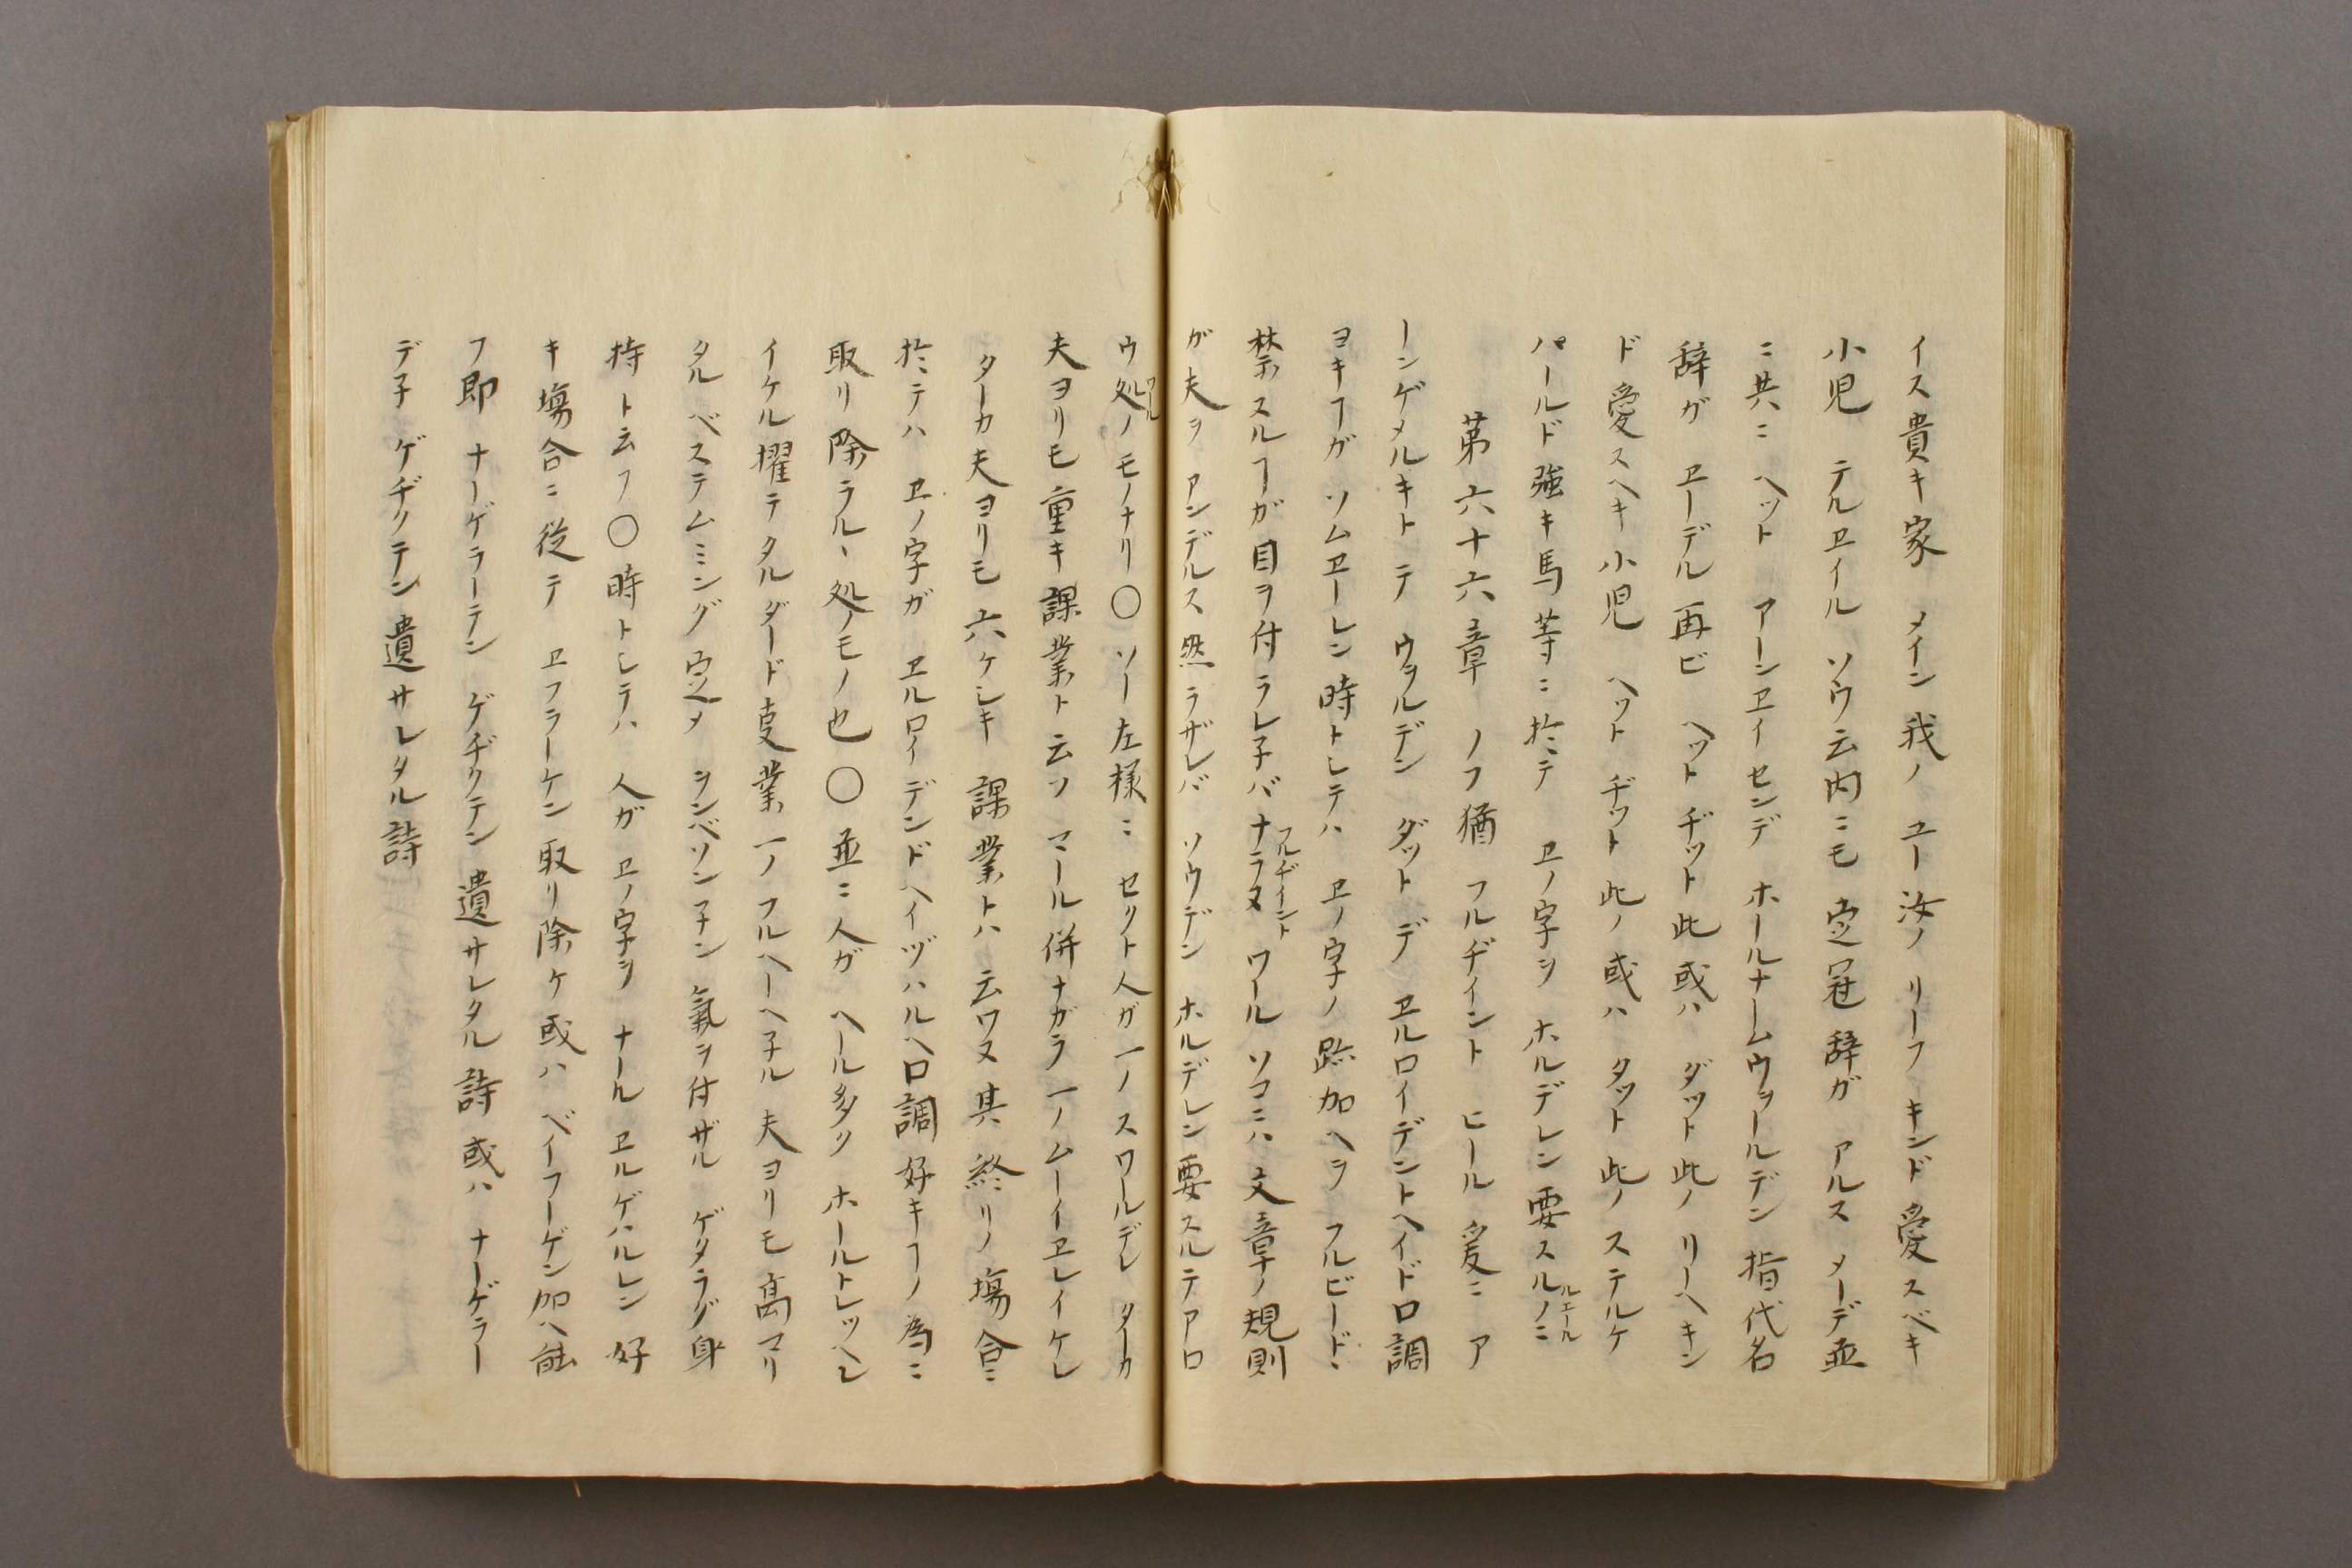 イス貴キ家　メイン我ノ　ユー汝ノ　リーフ　キンド愛スベキ
小児　テルヱイル　ソウ云内ニモ　定冠辞ガ　アルス　メーデ並
ニ共ニ　ヘット　アーンヱイセンデ　ホールナームウヲールデン　指代名
辞ガ　ヱーデル再ビ　ヘット　ヂット此或ハ　ダット此ノ　リーヘキン
ド愛スヘキ小児　ヘット　ヂット此ノ或ハ　タット此ノ　ステルケ
パールド強キ馬等ニ於テ　ヱノ字ヲ　ホルデレン要スルノニ
ルエール
第六十六章　ノフ猶　フルヂイント　ヒール爰ニ　ア
ーンゲメルキト　テ　ウヲルデン　ダット　デ　ヱルロイデントヘイド口調
ヨキヿガ　ソムヱーレン時トシテハ　ヱノ字ノ跡加ヘヲ　フルビード、
禁スルヿガ目ヲ付ラレ子バナラヌ　ワール　ソコニハ文章ノ規則
フルヂイント
ガ夫ヲ　アンデルス然ラザレバ　ソウデン　ホルデレン要スルテアロ
ウ処ノモノナリ〇ソー左様ニ　セクト人ガ一ノスワールデレ　ターカ
ワール
夫ヨリモ重キ課業ト云フ　マール併ナガラ一ノムーイヱレイケレ
ターカ夫ヨリモ六ケシキ　課業トハ云ワヌ其終リノ塲合ニ
於テハ　ヱノ字ガ　ヱルロイデンドヘイヅハルヘ口調好キヿノ為ニ
取リ除ラル、処ノモノ也〇並ニ人ガ　ヘール多ク　ホールトレッヘレ
イケル擢テタルダード叓業一ノフルヘーヘ子ル夫ヨリモ高マリ
タルベステムミング定メ　ヲンベソン子ン　氣ヲ付ザル　ゲダラグ身
持ト云フ〇時トシテハ　人ガヱノ字ヲ　ナール　ヱルゲハルレン好
キ塲合ニ従テ　ヱフラーケン取リ除ケ或ハ　ベイフーゲン加ヘ能
フ即　ナーゲラーテン　ゲヂクテン　遺サレタル詩或ハ　ナーゲラー
デ子　ゲヂクテン遺サレタル詩